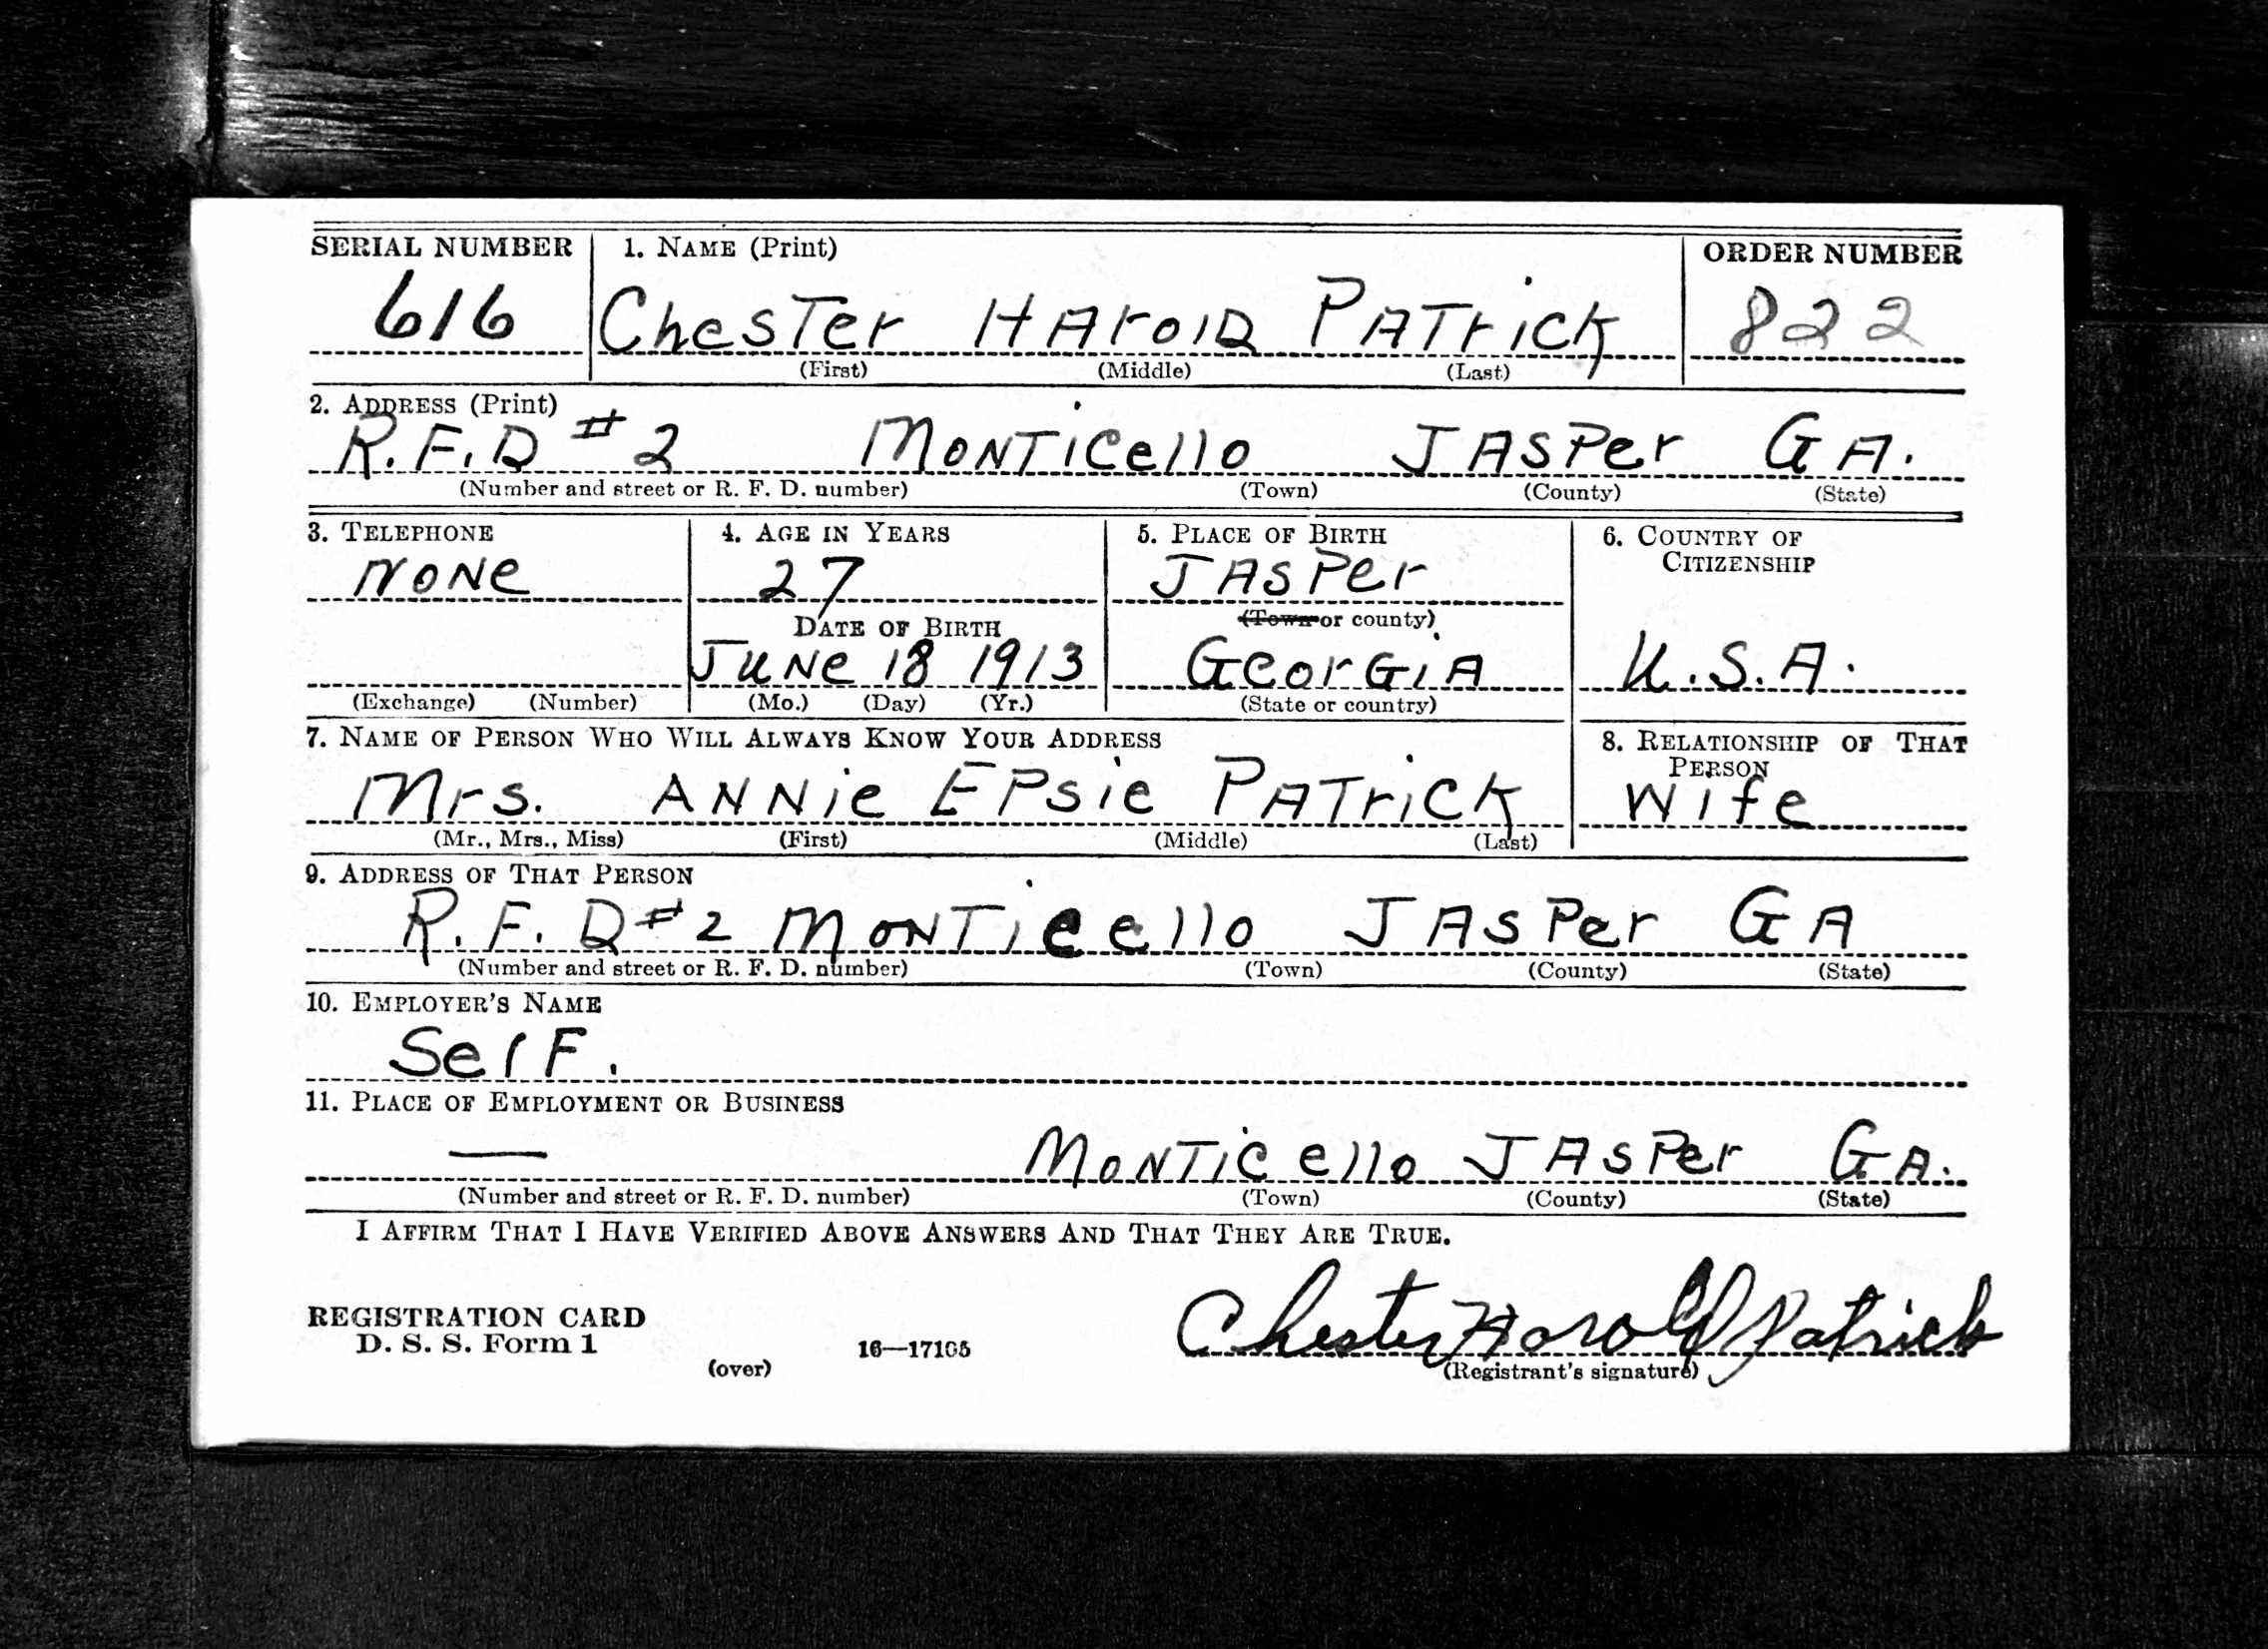 SERIAL NUMBER 1. NAME (Print) ORDER NUMBER
616 Chester Harold Patrick 822
(First) (Middle) (Last)
2. ADDRESS (Print)
R.F.D #2 Monticello Jasper GA.
(Number and street or R. F. D. number) (Town) (County) (State)
3. TELEPHONE 4. AGE IN YEARS 5. PLACE OF BIRTH 6. COUNTRY OF CITIZENSHIP
None 27 Jasper
DATE OF BIRTH (Town or county)
June 18 1913 Georgia U.S.A.
(Exchange) (Number) (Mo.) (Day) (Yr.) (State or country)
7. NAME OF PERSON WHO WILL ALWAYS KNOW YOUR ADDRESS 8. RELATIONSHIP OF THAT PERSON
Mrs. Annie Epsie Patrick Wife
(Mr., Mrs., Miss) (First) (Middle) (Last)
9. ADDRESS OF THAT PERSON
R.F.D #2 Monticello Jasper GA
(Number and street or R. F. D. number) (Town) (County) (State)
10. EMPLOYER'S NAME
Self.
11. PLACE OF EMPLOYMENT OR BUSINESS
— Monticello Jasper GA.
(Number and street or R. F. D. number) (Town) (County) (State)
I AFFIRM THAT I HAVE VERIFIED ABOVE ANSWERS AND THAT THEY ARE TRUE.
Chester Harold Patrick
REGISTRATION CARD
D. S. S. Form 1 16—17105
(over) (Registrant's signature)